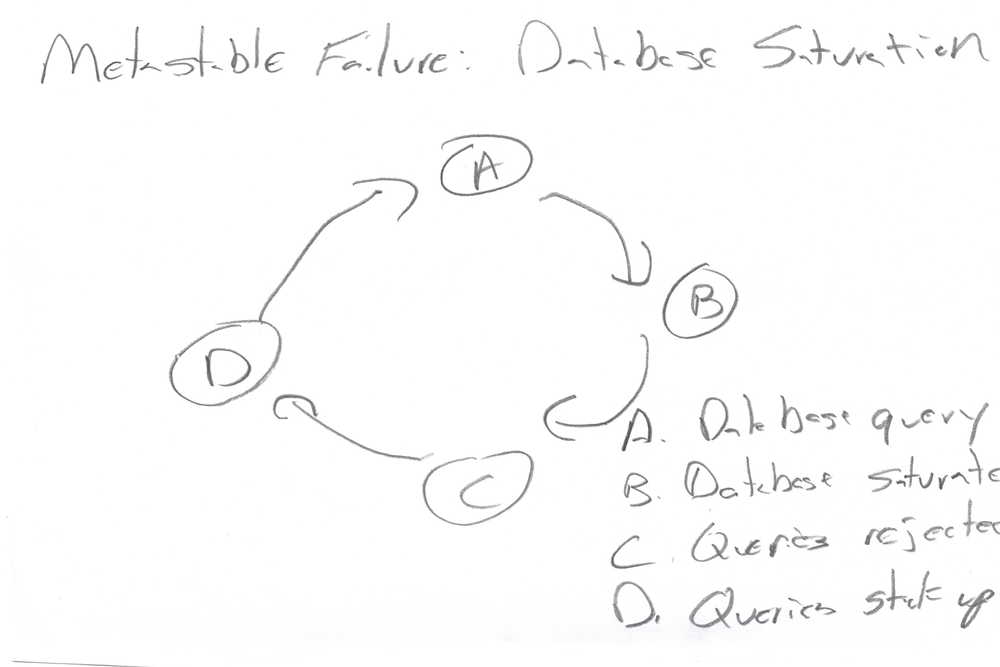 Metastable Failure: Database Saturation
A
B
D
C
A. Database query
B. Database saturate
C. Queries rejected
D. Queries stack up